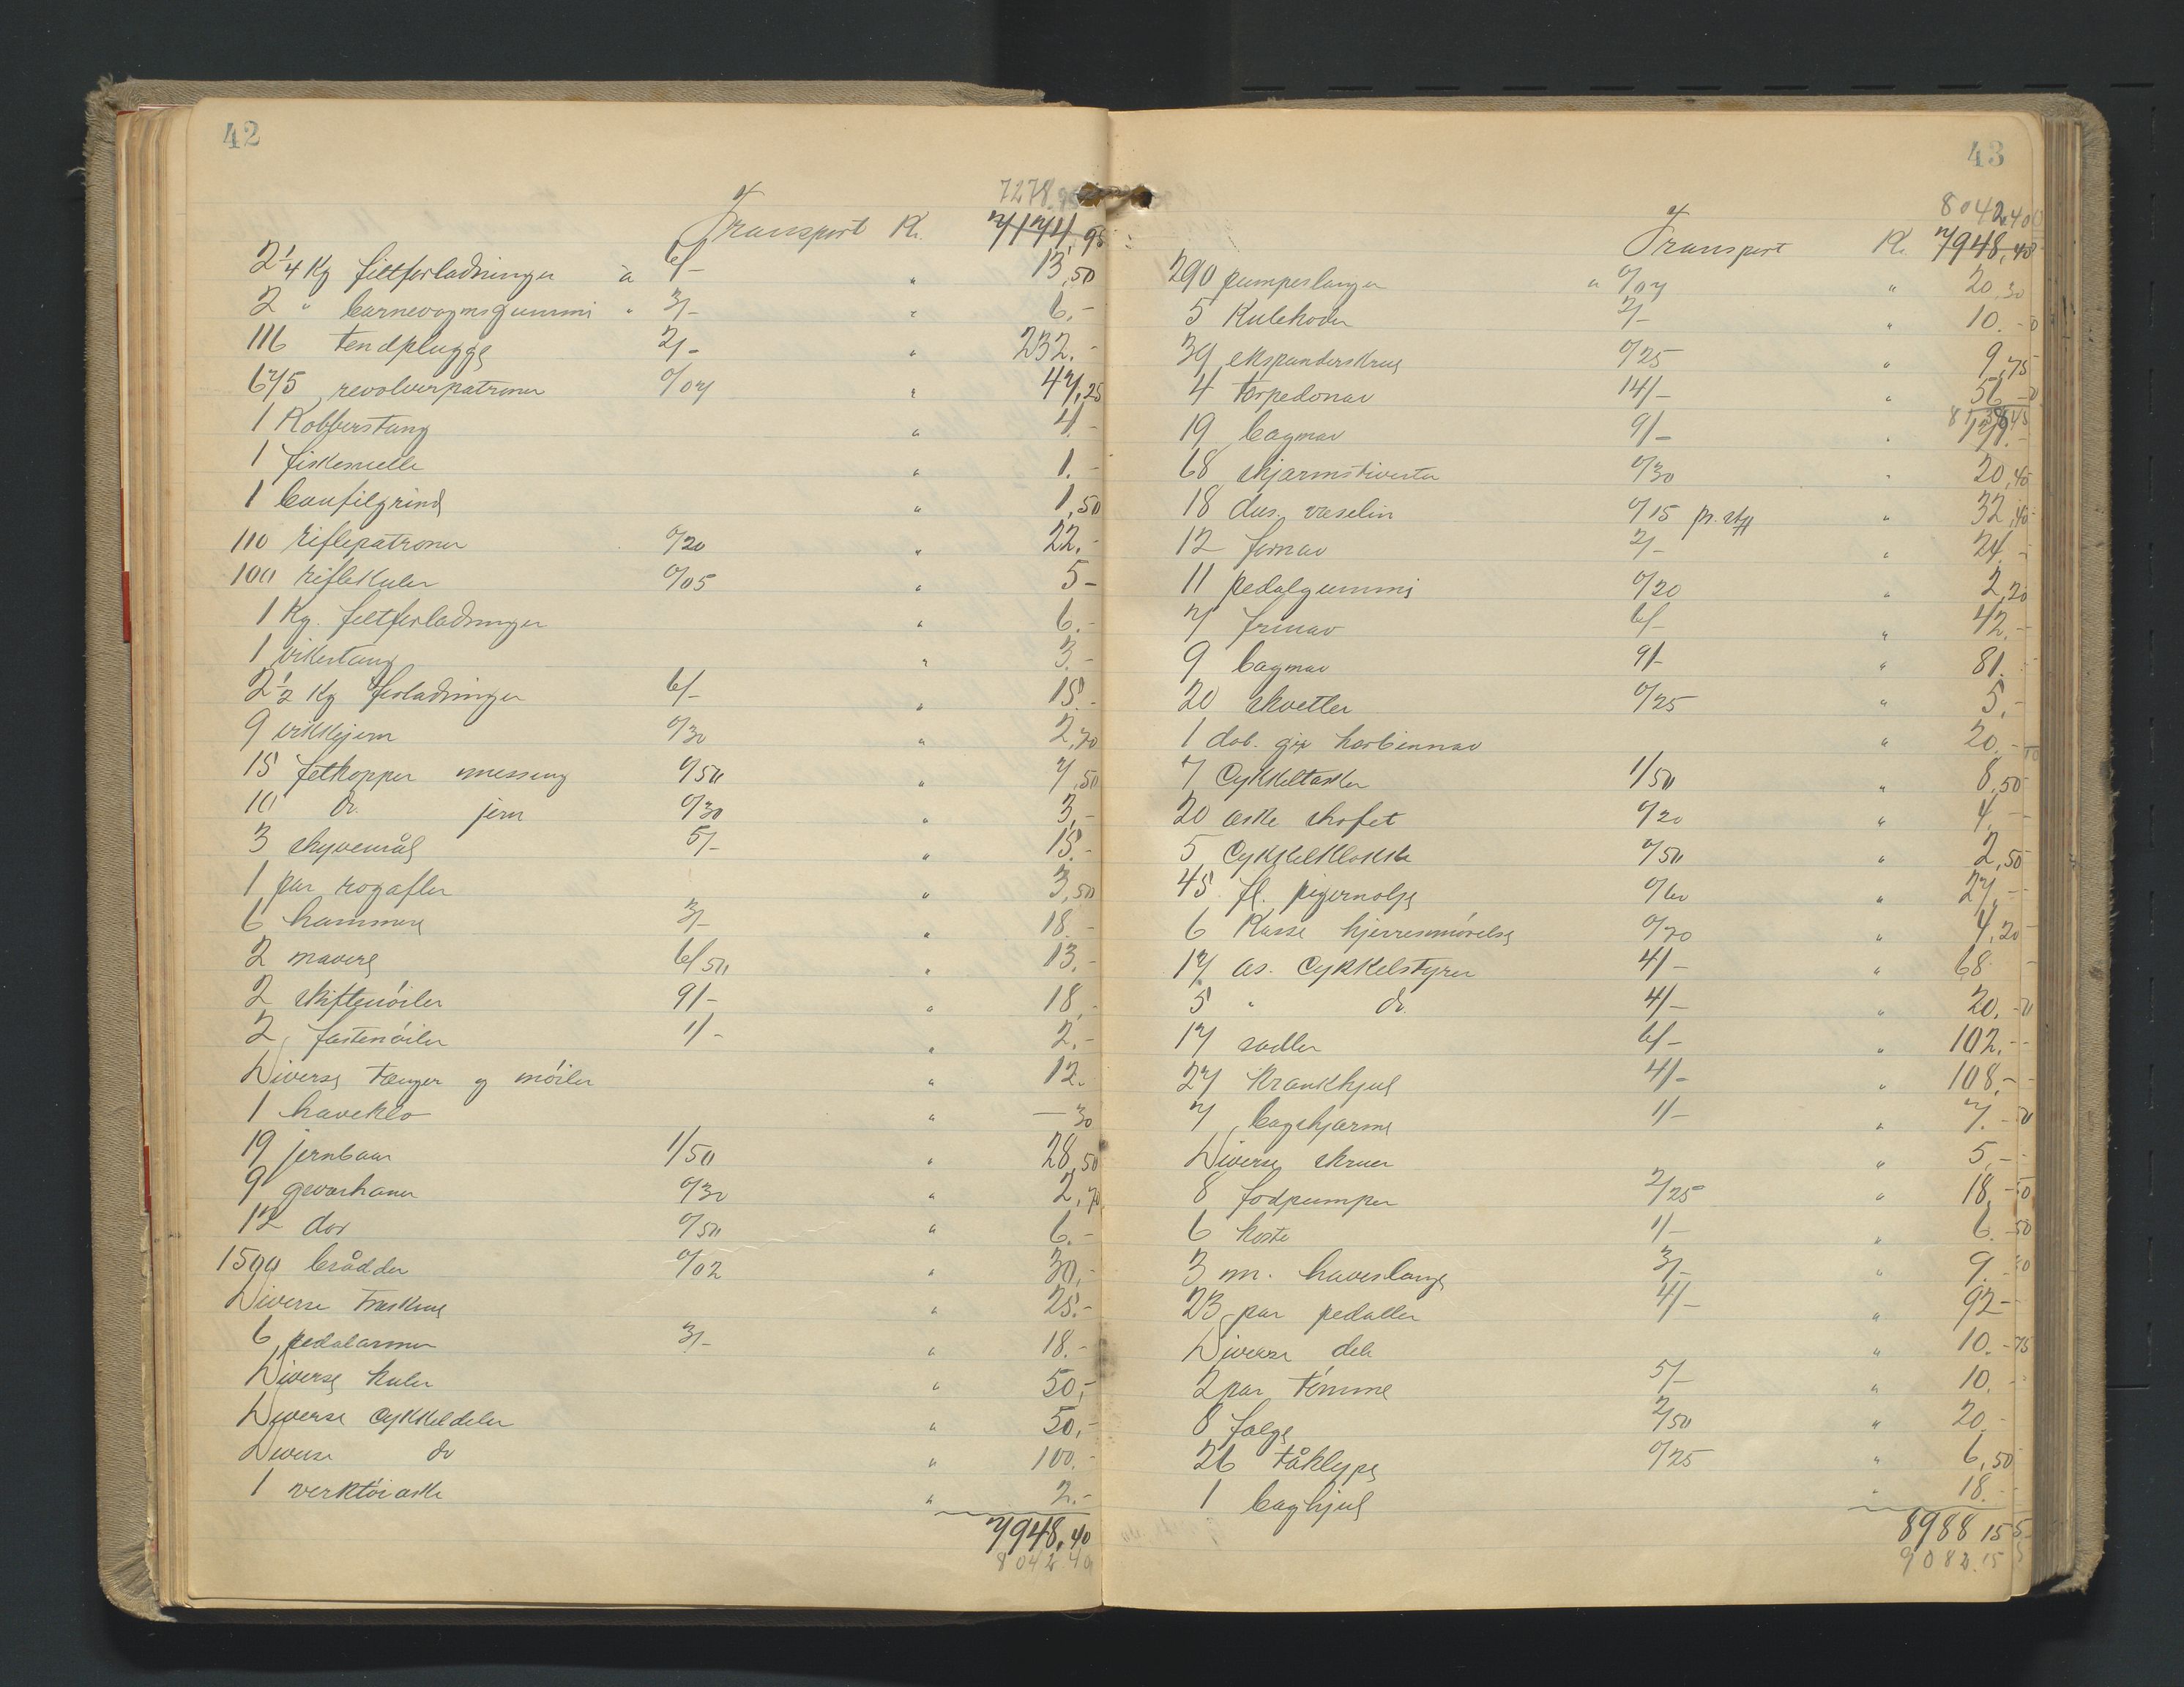 42
7278.95
Transport Kr. 7174,95
2 1/4 Kg filtforladninger à 6/- " 13,50
2 " barnevognsgummi " 3/- " 6.-
116 tendplugge 2/- " 232.-
675 revolverpatroner 0/07 " 47,25
1 Kobberstang " 4.-
1 fiskesnelle " 1.-
1 baufilgrind " 1,50
110 riflepatroner 0/20 " 22.-
100 riflekuler 0/05 " 5-
1 Kg. filtforladninger " 6.-
1 " 3.-
2 1/2 Kg forladninger 6/- " 15.-
9 0/30 " 2,70
15 fetkopper messing 0/50 " 7,50
10 do. jern 0/30 " 3,-
3 skyvemål 5/- " 15.-
1 par " 3,50
6 hammere 3/- " 18.-
2 navere 6/50 " 13.-
2 skiftenøiler 9/- " 18.-
2 fastenøiler 1/- " 2.-
Diverse tænger og nøiler " 12.-
1 haveklo " —30
19 jernbaur 1/50 " 28,50
9 geværhaner 0/30 " 2,70
12 dor 0/50 " 6.-
1500 brådder 0/02 " 30,-
Diverse træskrue " 25.-
6 pedalarmer 3/- " 18.-
Diverse kuler " 50,-
Diverse Cykkeldeler " 50,-
Diverse do " 100.-
1 verktøiaske " 2.-
7948,40
8042.40
43
8042,40
Transport Kr. 7948,40
290 pumpeslanger " 0/07 " 20,30
5 Kulehoder 2/- " 10.-
39 ekspanderskrue 0/25 " 9,75
4 torpedonav 14/- " 56.-
19 bagnav 9/- " 171.-
68 skjærmstivere 0/30 " 20,40
18 dus. vaselin 0/15 pr. stk " 32,40
12 fornav 2/- " 24.-
11 pedalgummi 0/20 " 2,20
7 frinav 6/- " 42.-
9 bagnav 9/- " 81.-
20 skvetter 0/25 " 5,-
1 dob. gir " 20.-
7 Cykkeltasker 1/50 " 8,50
20 æske skofet 0/20 " 4.-
5 Cykkelklokke 0/50 " 2,50
45 fl. 0/60 " 27.-
6 Kasse 0/70 " 4,20
17 as. Cykkelstyrer 4/- " 68
5 " do. 4/- " 20.-
17 sadler 6/- " 102.-
27 Krankhjul 4/- " 108.-
7 bagskjærme 1/- " 7.-
Diverse skruer " 5.-
8 fodpumper 2/25 " 18,-
6 koste 1/- " 6.-
3 m. haveslange 3/- " 9.-
23 par pedaller 4/- " 92-
Diverse dele " 10.-
2 par tømme 5/- " 10.-
8 fælge 2/50 " 20.-
26 tåklype 0/25 " 6,50
1 baghjul " 18.-
8988,15
9082.15